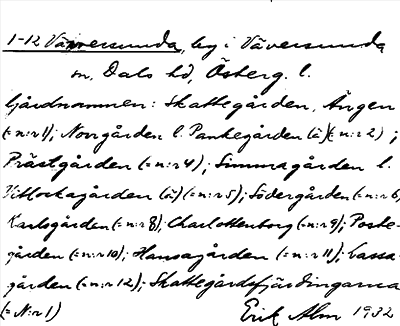 1-12 Väversunda, by i Väversunda
sn, Dals hd, Österg. l.
Gårdnamnen: Skattegården, Ängen
(= n:r 1); Norrgården l. Pankegården (ä) (= n:r 2);
Prästgården (= n:r 4); Simmagården l.
Klockagården (ä) (= n:r 5); Södergården (= n:r 6,
Karlsgården (= n:r 8); Charlottenborg (= n:r 9); Poste-
gården (= n:r 10); Hansagården (= n:r 11); Lassa-
gården (= n:r 12); Skattegårdsfjärdingarna
(= N:r 1)
Erik Alm 1932